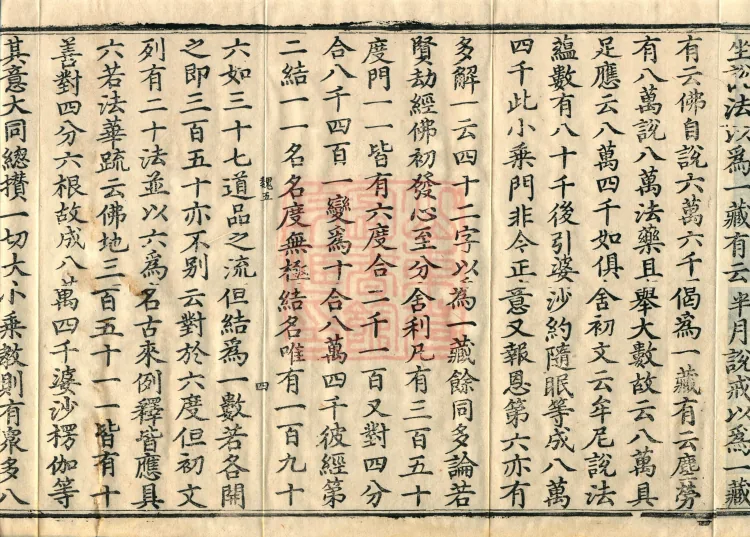 坐說法以為一藏有云半月說戒以為一藏
有云佛自說六萬六千偈為一藏有云塵勞
有八萬說八萬法藥且舉大數故云八萬具
足應云八萬四千如俱舍初文云牟尼說法
蘊數有八十千後引婆沙約隨眠等成八萬
四千此小乘門非今正意又報恩第六亦有
多解一云四十二字以為一藏餘同多論若
賢劫經佛初發心至分舍利凡有三百五十
度門一一皆有六度合二千一百又對四分
合八千四百一變為十合八萬四千彼經第
二結一一名名度無極結名唯有一百九十
魏五 四
六如三十七道品之流但結為一數若各開
之即三百五十亦不別云對於六度但初文
列有二十法並以六為名古來例釋皆應具
六若法華疏云佛地三百五十一一皆有十
善對四分六根故成八萬四千婆沙楞伽等
其意大同總攢一切大小乘教則有衆多八